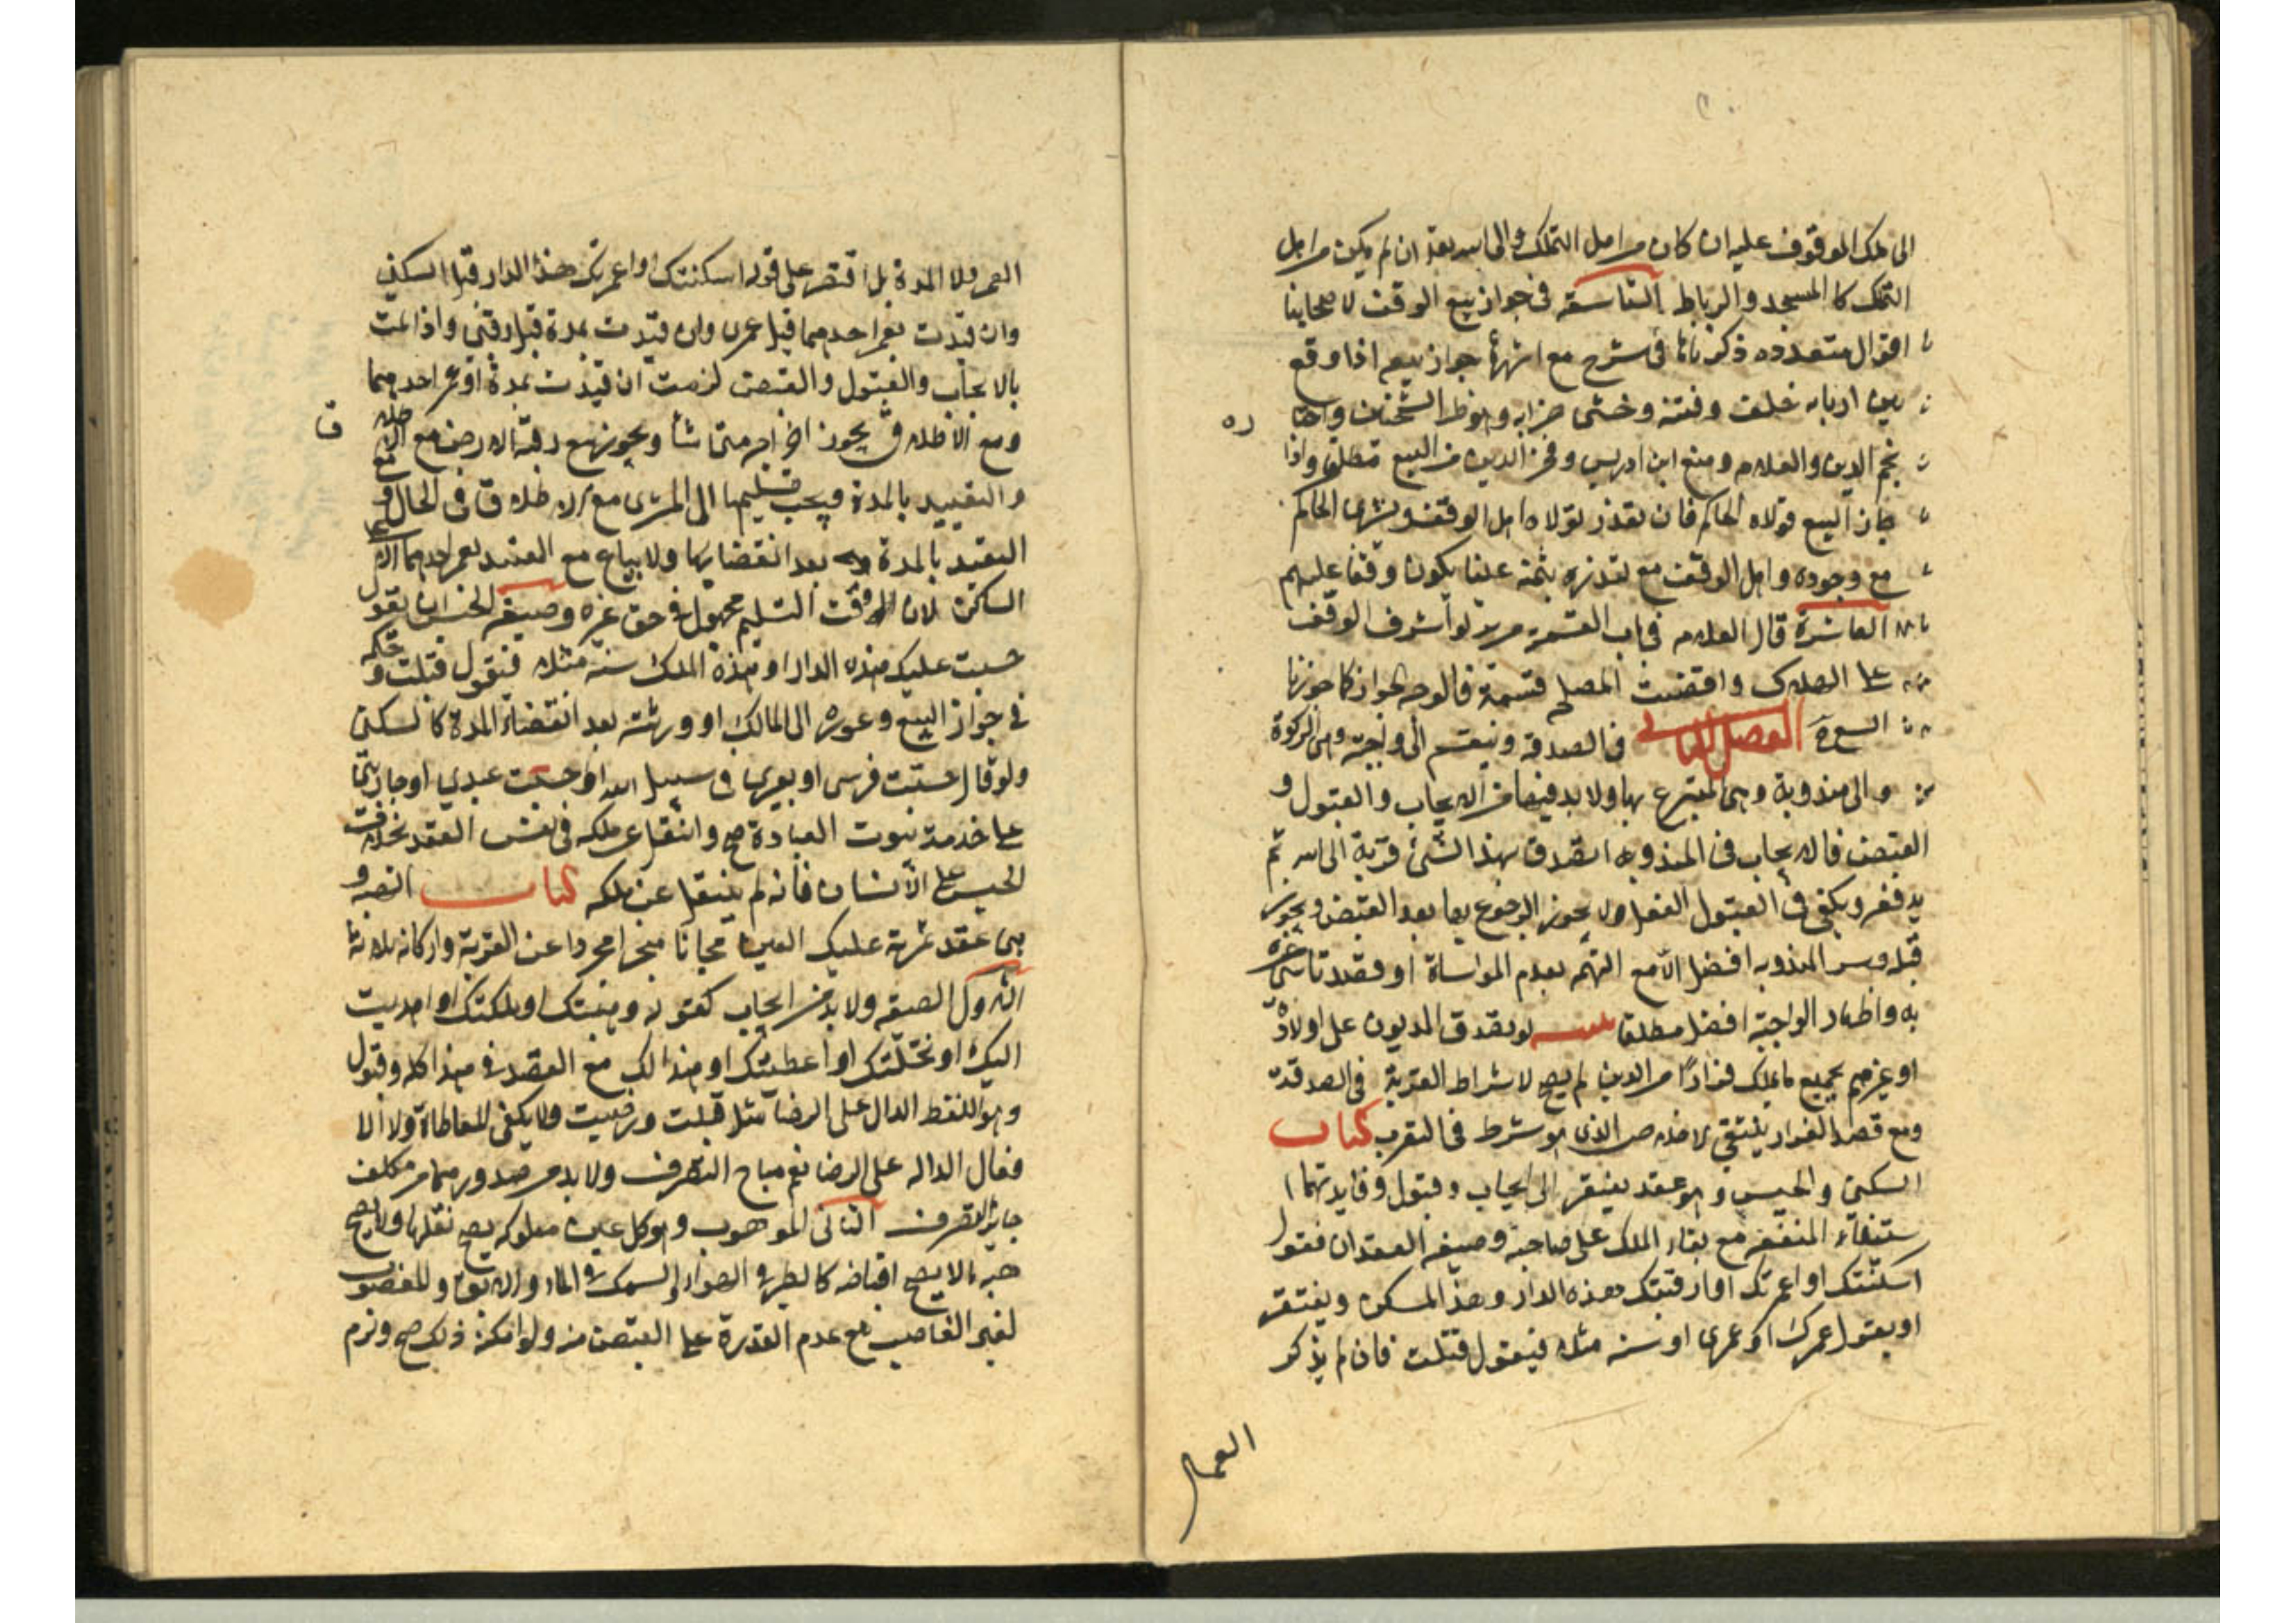 الى ملك الموقوف عليه ان كان من اهل التملك والى الله تعالى ان لم يكن من اهل
التملك كالمسجد والرباط التاسعة في جواز بيع الوقف لاصحابنا
اقوال متعدده ذكرناها في شرح مع اشهرها جواز بيعه اذا وقع
بين اربابه خلف وفتنة وخشى خرابه وهو ظ الشيخين واختا ره
نجم الدين والعلامه ومنع ابن ادريس وفخر الدين من البيع مطلقا واذا
جاز البيع تولاه الحاكم فان تعذر تولاه اهل الوقف ويشترى الحاكم
مع وجوده واهل الوقف مع تعذره بثمنه عينا يكون وقفا عليهم
العاشرة قال العلامه في باب القسمه من ير لو اشرف الوقف
على الهلاك واقتضت المصلحة قسمة فالوجه الجواز كما جوزنا
البيع الفصل الثاني في الصدقة وينقسم الى واجبة وهى الزكوة
والى مندوبة وهى المتبرع بها ولابد فيها من الايجاب والقبول و
القبض فالايجاب في المندوبه اتصدق بهذا الشئ قربة الى الله ثم
يدفعه ويكفى في القبول الفعل ولا يجوز الرجوع بها بعد القبض ويجوز
قبله وسر المندوبه افضل الا مع التهمه بعدم المواساة او قصد تاسى غيره
به واظهار الواجبة افضل مطلقا لو تصدق المديون على اولاده
او غيرهم بجميع ما يملك فرارا من الدين لم يصح لاشتراط القربة في الصدقة
ومع قصد الفرار ينتفى الاخلاص الذى هو شرط في التقرب كتاب
السكنى والحبس وهو عقد يفتقر الى ايجاب وقبول وفايدتهما ا
ستيفاء المنفعة مع بقاء الملك على صاحبه وصيغه العقد ان يقول
اسكنتك او اعمرتك او ارقبتك هذه الدار وهذا المسكن ويفتقر
او يقول عمرك او عمرى او سنه مثلا فيقول قبلت فان لم يذكر
العمر
العمر ولا المدة بل اقتصر على قوله اسكنتك او اعمرتك هذا الدار قيل السكنى
وان قيدت بعمر احدهما قيل عمرى وان قيدت بمدة قيل رقبى واذا تمت
بالايجاب والقبول والقبض لزمت ان قيدت بمدة او عمر احدهما
ومع الاطلاق يجوز اخراجه متى شاء ويجوز بيع رقبة الارض مع الاطلا ق
والتقييد بالمدة ويجب تسليمها الى المشترى مع الاطلاق في الحال ومع
التقيد بالمدة بعد انقضائها ولا يباع مع التقيد بعمر احدهما الا على
الساكن لان وقت التسليم مجهول في حق غيره وصيغه الحبس ان يقول
حبست عليك هذه الدار او هذه الملك سنة مثلا فيقول قبلت وحكمه
في جواز البيع وعوده الى المالك او ورثته بعد انقضاء المدة كالسكنى
ولو قال حبست فرسى او بعيرى في سبيل الله او حبست عبدي او جاريتى
على خدمة بيوت العبادة صح وانتقل عن ملكه في نفس العقد بخلاف
الحبس على الانسان فانه لم ينتقل عن ملكه كتاب الهبه و
هى عقد ثمرته تمليك العين مجانا منجزا مجردا عن القربة واركانه ثلاثة
الاول الصيغه ولابد من ايجاب كقوله وهبتك او ملكتك او اهديت
اليك او نحلتك او اعطيتك او هذا لك مع القصد في هذا كله وقبول
وهو اللفظ الدال على الرضا مثل قبلت ورضيت ولا يكفى المعاطاة ولا الا
فعال الداله على الرضا نعم يباح التصرف ولا بد من صدورهما من مكلف
جايز التصرف الثانى الموهوب وهو كل عين مملوكه يصح نقلها ولا يصح
هبة ما لا يصح اقباضه كالطير في الهواء والسمك في الماء والابق والمغصوب
لغير الغاصب مع عدم القدرة على القبض منه ولو امكن ذلك صح ولزم